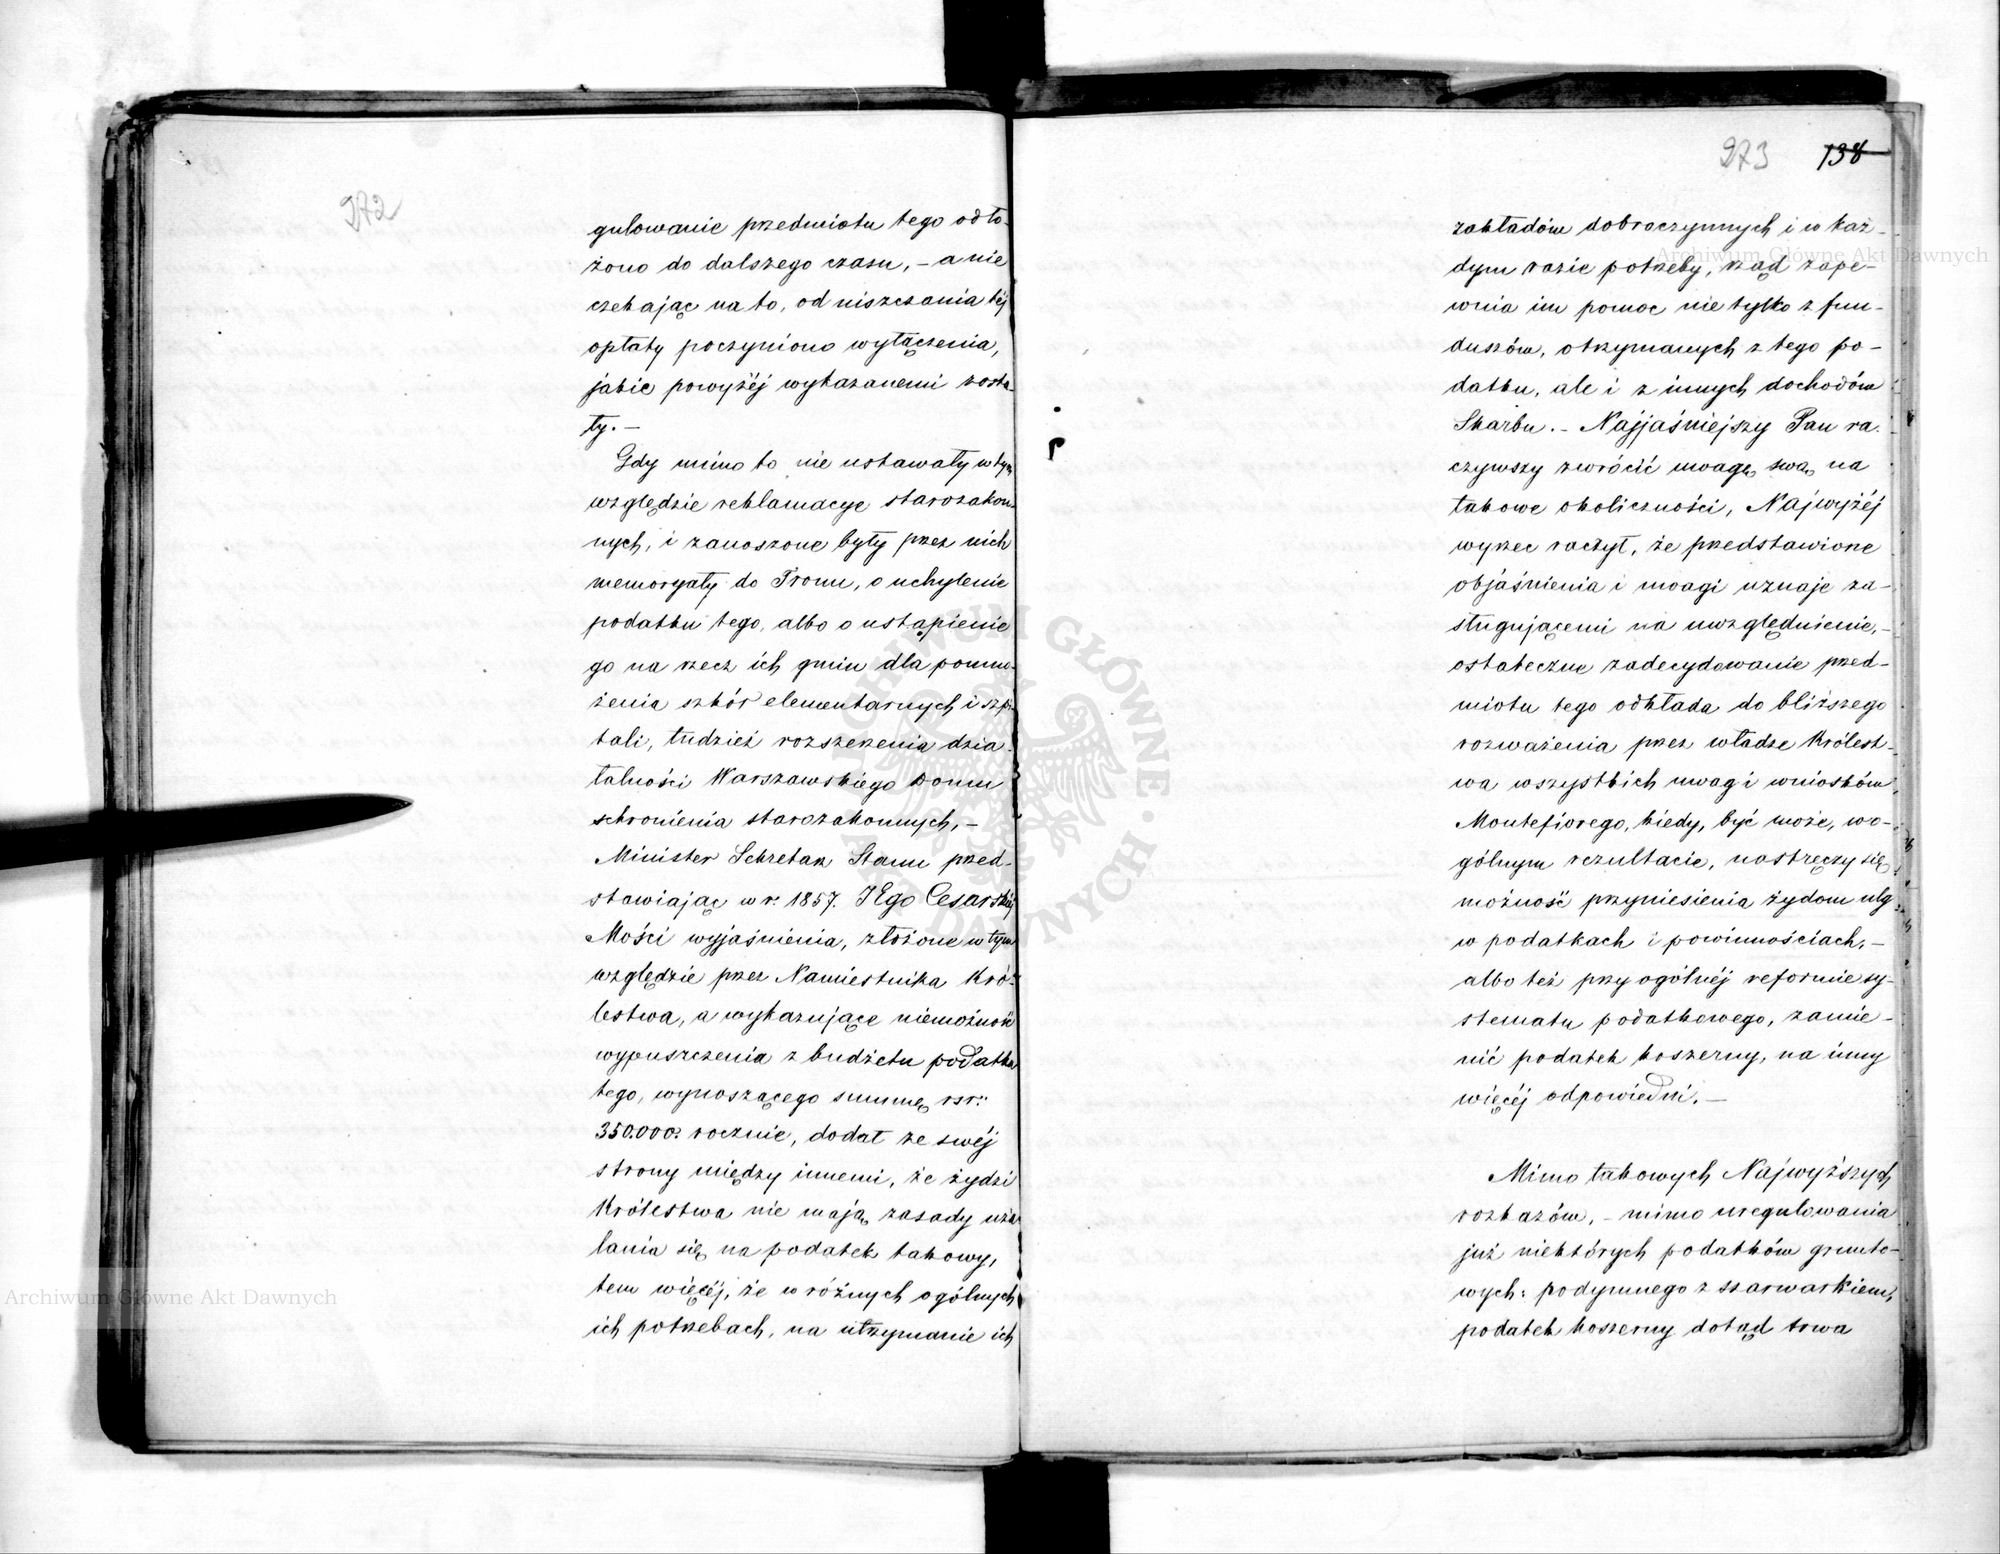 272
gulowanie przedmiotu tego odło-
żono do dalszego czasu, – a nie
czekając na to, od niszczania téj
opłaty poczyniono wyłączenia,
jakie powyżéj wykazanemi zosta-
ły. –
Gdy mimo to nie ustawały w tym
względzie reklamacye starozakon-
nych, i zanoszone były przez nich
memoryały do Tronu, o uchylenie
podatku tego, albo o ustąpienie
go na rzecz ich gmin dla pomno-
żenia szkół elementarnych i szpi-
tali, tudzież rozszerzenia dzia-
łalności Warszawskiego Domu
schronienia starozakonnych, –
Minister Sekretarz Stanu przed-
stawiając w r. 1857. JEgo Cesarskiéj
Mości wyjaśnienia, złożone w tym
względzie przez Namiestnika Kró-
lestwa, a wykazujące niemożność
wypuszczenia z budżetu podatku
tego, wynoszącego summę rsr:
350.000. rocznie, dodał ze swéj
strony między innemi, że żydzi
Królestwa nie mają zasady uża-
lania się na podatek takowy,
tem więcéj, że w różnych ogólnych
ich potrzebach, na utrzymanie ich
273 138
zakładów dobroczynnych i w każ-
dym razie potrzeby, rząd zape-
wnia im pomoc nie tylko z fun-
duszów, otrzymanych z tego po-
datku, ale i z innych dochodów
Skarbu. – Najjaśniejszy Pan ra-
czywszy zwrócić uwagę swą na
takowe okoliczności, Najwyżéj
wyrzec raczył, że przedstawione
objaśnienia i uwagi uznaje za-
sługującemi na uwzględnienie, –
ostateczne zadecydowanie przed-
miotu tego odkłada do bliższego
rozważenia przez władze Królest-
wa wszystkich uwag i wniosków
Montefiorego, kiedy, być może, wo-
gólnym rezultacie, nastręczy się
możność przyniesienia żydom ulg
w podatkach i powinnościach, –
albo też przy ogólnéj reformie sy-
stematu podatkowego, zamie-
nić podatek koszerny, na inny
więcéj odpowiedni. –
Mimo takowych Najwyższych
rozkazów, – mimo uregulowania
już niektórych podatków grunto-
wych: podymnego z szarwarkiem,
podatek koszerny dotąd trwa
Archiwum Główne Akt Dawnych
Archiwum Główne Akt Dawnych